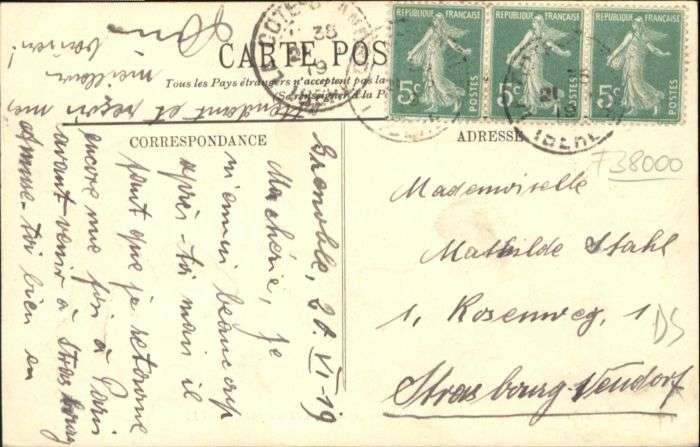 CARTE POS
Tous les Pays étrangers n'acceptent pas la
CORRESPONDANCE
ADRESSE
REPUBLIQUE FRANÇAISE
5c
POSTES
REPUBLIQUE FRANÇAISE
5c
POSTES
REPUBLIQUE FRANÇAISE
5c
POSTES
ISERE
F38000
Grenoble, 21 VI-19
Ma chérie, je
m'ennui beaucoup
après-toi mais il
faut que je retourne
encore une foi à Paris
avant venir à Strasbourg
Amuse-toi bien en
attendant et reçois mes
meilleur
baiser!
Mademoiselle
Mathilde Stahl
1, Rosenweg, 1
Strasbourg-Neudorf
DS